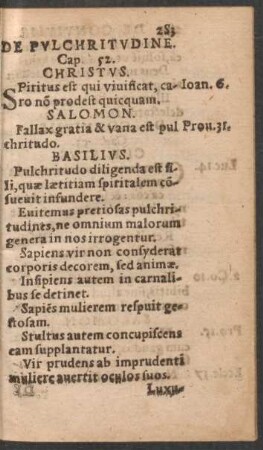 283
DE PVLCHRITVDINE.
Cap. 52.
CHRISTVS.
SPiritus est qui viuificat, ca- Ioan. 6.
ro nõ prodest quicquam.
SALOMON.
Fallax gratia & vana est pul Prou. 31.
chritudo.
BASILIVS.
Pulchritudo diligenda est fi-
li, quæ lætitiam spiritalem cõ-
sueuit infundere.
Euitemus pretiosas pulchri-
tudines, ne omnium malorum
genera in nos irrogentur.
Sapiens vir non consyderat
corporis decorem, sed animæ.
Insipiens autem in carnali-
bus se detinet.
Sapiẽs mulierem respuit ge-
stosam.
Stultus autem concupiscens
eam supplantatur.
Vir prudens ab imprudenti
muliere auertit oculos suos.
Luxu-